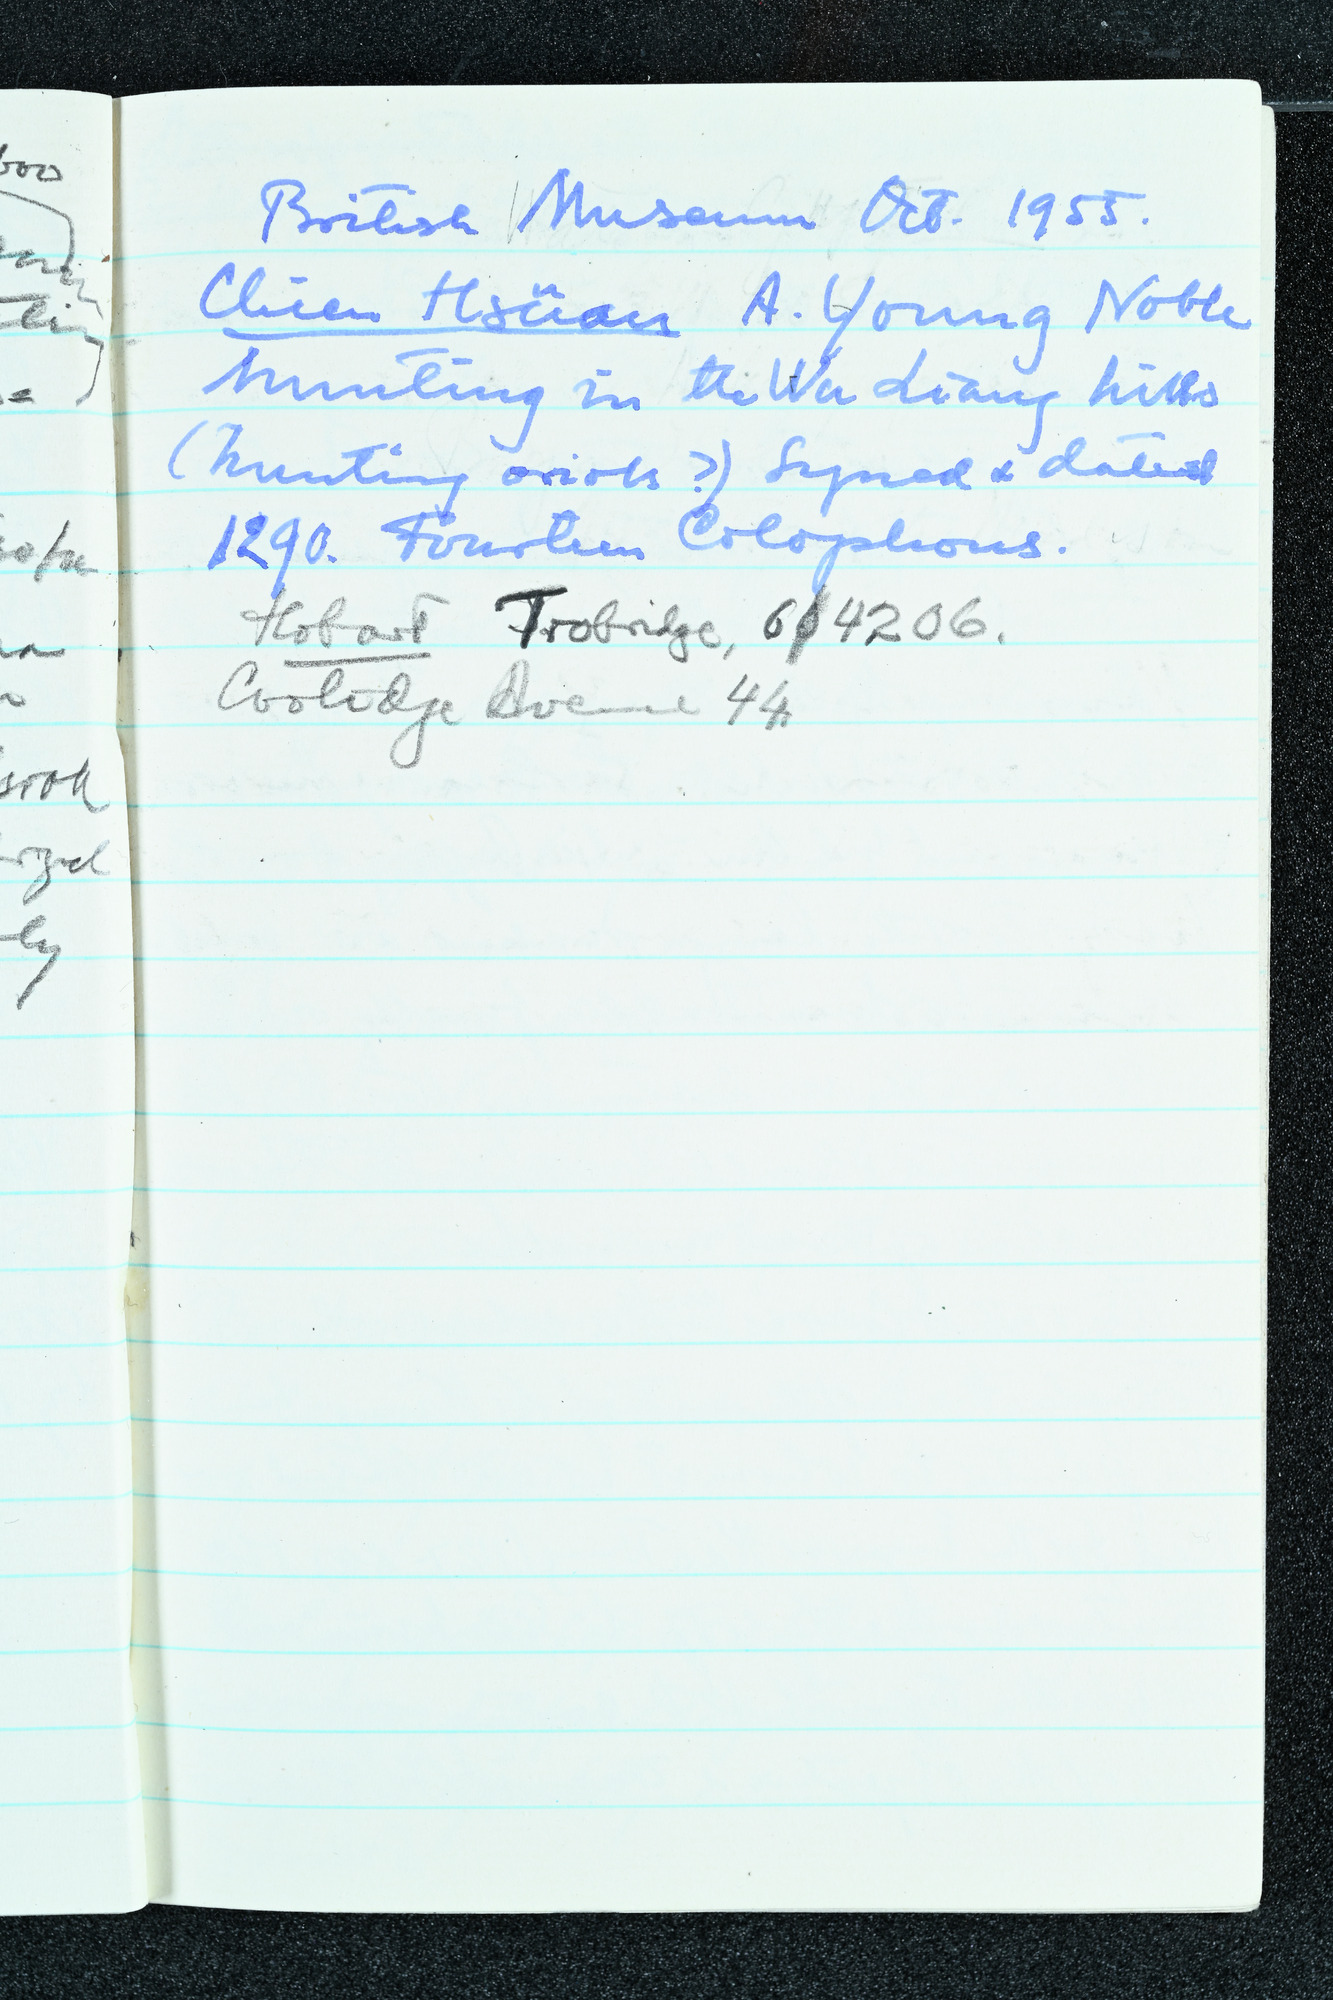 British Museum Oct. 1955.
Chien Hsüan A. Young Noble
hunting in the Wu Liang hills
(hunting oriols ?) Signed & dated
1290. Fourteen Colophons.
Hobart Trobridge, 614206.
Coolidge Avenue 44
boo
ly